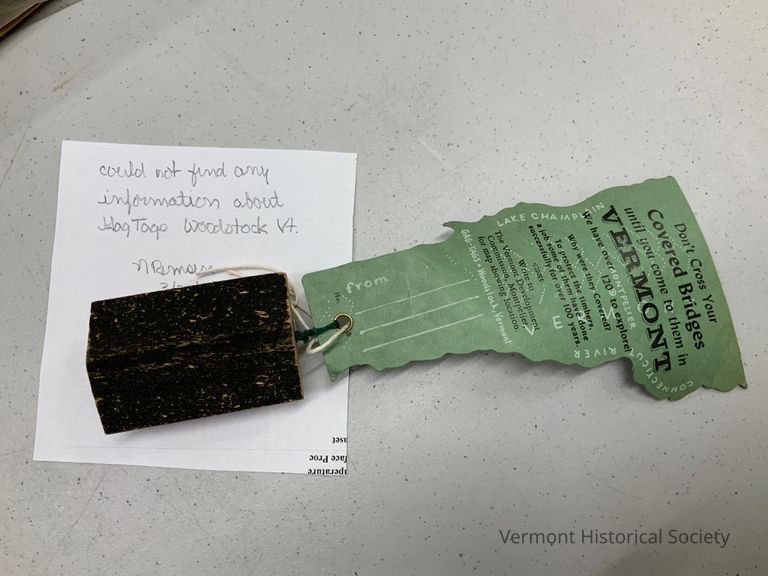 could not find any
information about
HagTags Woodstock Vt.
Don't Cross Your
Covered Bridges
until you come to them in
VERMONT
We have over 120 to explore!
Why were they Covered?
To protect the timbers,
a job some of them have done
successfully for over 100 years.
Write to
The Vermont Development
Commission, Montpelier,
for map showing location.
GAG-TAGS, Woodstock, Vermont
LAKE CHAMPLAIN
MONTPELIER
CONNECTICUT RIVER
from
aset
face Proc
perature
Vermont Historical Society